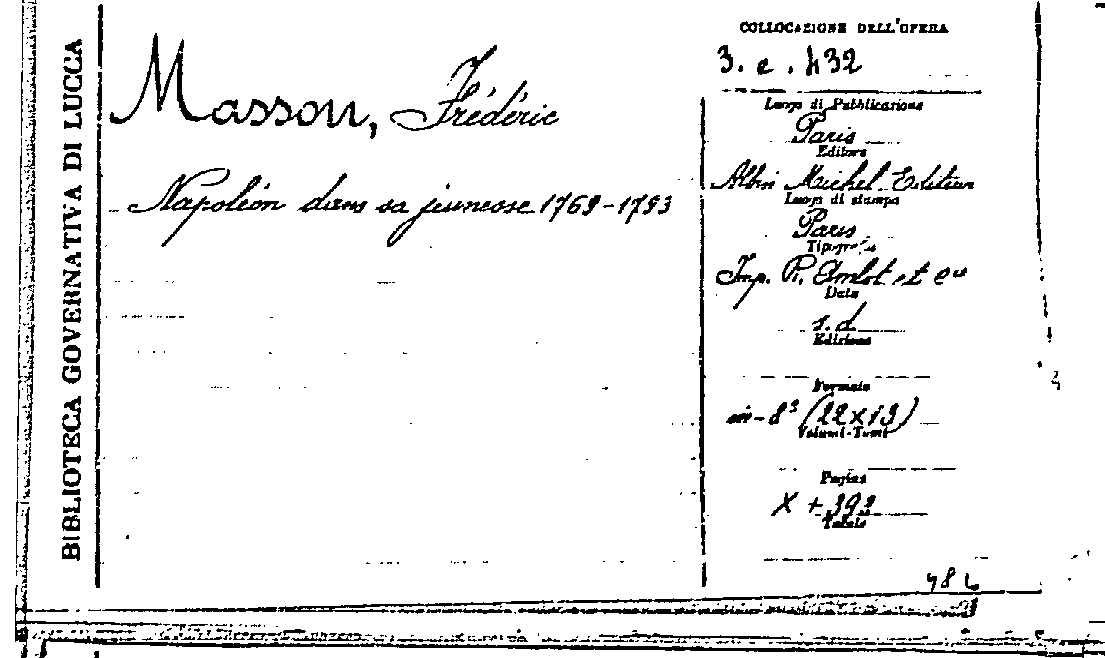 BIBLIOTECA GOVERNATIVA DI LUCCA
Masson, Frédéric
Napoléon dans sa jeunesse 1769-1793
COLLOCAZIONE DELL'OPERA
3. e. 432
Luogo di Pubblicazione
Paris
Editore
Albin Michel Editeur
Luogo di stampa
Paris
Tipografia
Imp. et Cie
Data
s. d.
Edizione
Formato
in-8° (22x13)
Volumi-Tomi
Pagine
X +
Tavole